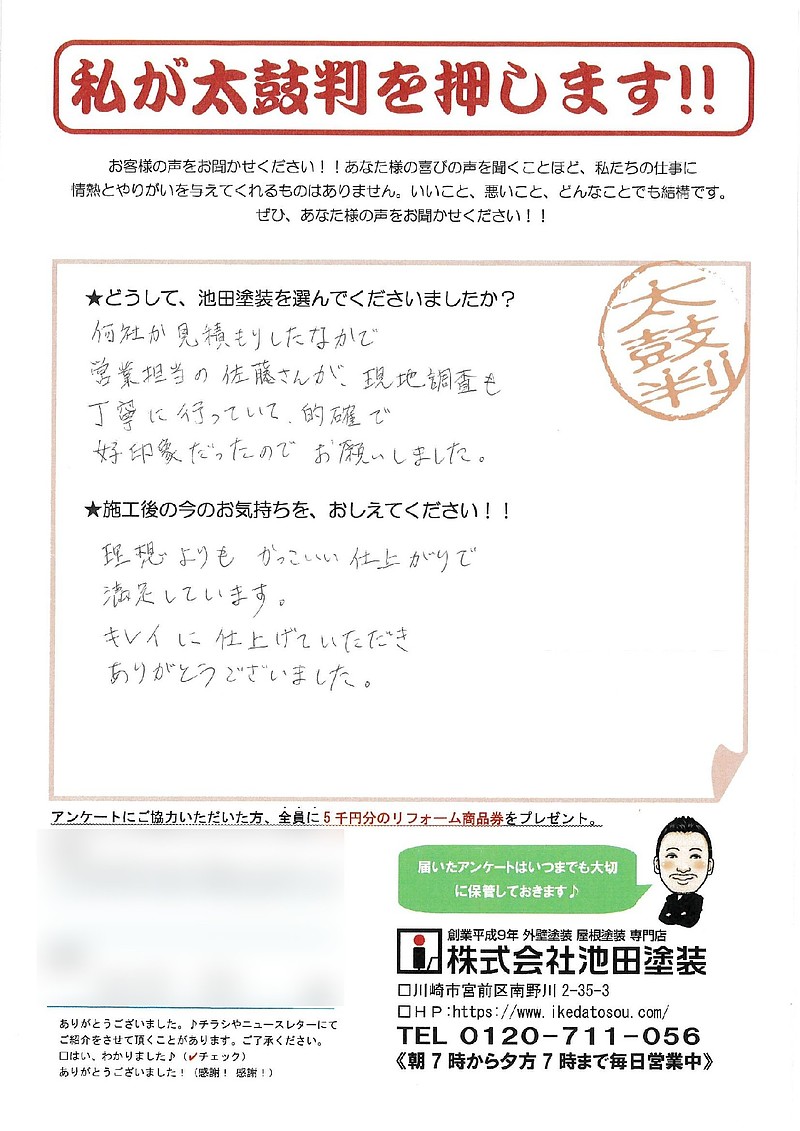 私が太鼓判を押します!!
お客様の声をお聞かせください！！あなた様の喜びの声を聞くことほど、私たちの仕事に
情熱とやりがいを与えてくれるものはありません。いいこと、悪いこと、どんなことでも結構です。
ぜひ、あなた様の声をお聞かせください！！
太鼓判
★どうして、池田塗装を選んでくださいましたか？
何社か見積もりしたなかで
営業担当の佐藤さんが、現地調査も
丁寧に行っていて、的確で
好印象だったのでお願いしました。
★施工後の今のお気持ちを、おしえてください！！
理想よりもかっこいい仕上がりで
満足しています。
キレイに仕上げていただき
ありがとうございました。
アンケートにご協力いただいた方、全員に５千円分のリフォーム商品券をプレゼント。
届いたアンケートはいつまでも大切
に保管しておきます♪
創業平成9年 外壁塗装 屋根塗装 専門店
株式会社池田塗装
□川崎市宮前区南野川2-35-3
□ＨＰ:https://www.ikedatosou.com/
TEL 0120-711-056
《朝７時から夕方７時まで毎日営業中》
ありがとうございました。♪チラシやニュースレターにて
ご紹介をさせて頂くことがあります。ご了承ください。
□はい、わかりました♪（✓チェック）
ありがとうございました！（感謝！感謝！）